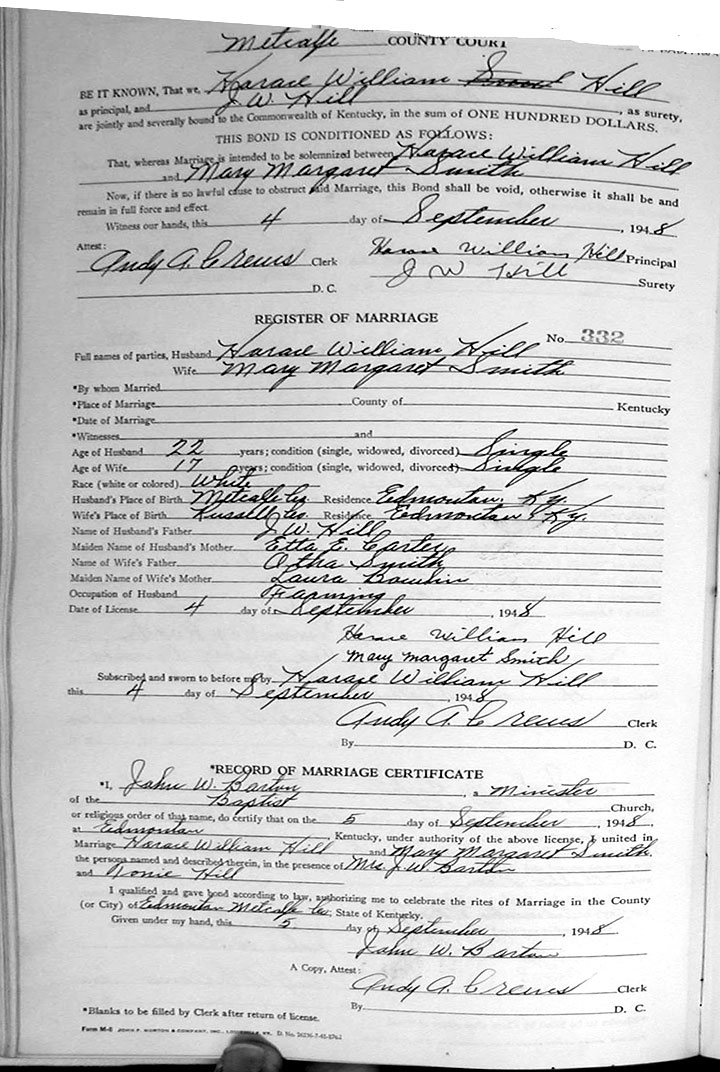 Metcalfe COUNTY COURT
BE IT KNOWN, That we, Horace William Hill
as principal, and J. W. Hill, as surety,
are jointly and severally bound to the Commonwealth of Kentucky, in the sum of ONE HUNDRED DOLLARS.
THIS BOND IS CONDITIONED AS FOLLOWS:
That, whereas Marriage is intended to be solemnized between Horace William Hill
and Mary Margaret Smith
Now, if there is no lawful cause to obstruct said Marriage, this Bond shall be void, otherwise it shall be and
remain in full force and effect.
Witness our hands, this 4 day of September, 1948
Attest: Horace William Hill Principal
Andy A. Crews Clerk J W Hill Surety
D. C.
REGISTER OF MARRIAGE
No. 332
Full names of parties, Husband Horace William Hill
Wife Mary Margaret Smith
*By whom Married
*Place of Marriage County of Kentucky
*Date of Marriage
*Witnesses and
Age of Husband 22 years; condition (single, widowed, divorced) Single
Age of Wife 17 years; condition (single, widowed, divorced) Single
Race (white or colored) White
Husband's Place of Birth Metcalfe Co. Residence Edmonton, Ky.
Wife's Place of Birth Russell Co. Residence Edmonton, Ky.
Name of Husband's Father J. W. Hill
Maiden Name of Husband's Mother Etta E. Carter
Name of Wife's Father Otha Smith
Maiden Name of Wife's Mother Laura
Occupation of Husband Farming
Date of License 4 day of September, 1948
Horace William Hill
Mary Margaret Smith
Subscribed and sworn to before me by Horace William Hill
this 4 day of September, 1948
Andy A. Crews Clerk
By D. C.
*RECORD OF MARRIAGE CERTIFICATE
*I, John W. Barton, a Minister
of the Baptist Church,
or religious order of that name, do certify that on the 5 day of September, 1948
at Edmonton, Kentucky, under authority of the above license, I united in
Marriage Horace William Hill and Mary Margaret Smith,
the persons named and described therein, in the presence of Mrs J. W. Barton
and Hill
I qualified and gave bond according to law, authorizing me to celebrate the rites of Marriage in the County
(or City) of Edmonton Metcalfe Co, State of Kentucky.
Given under my hand, this 5 day of September, 1948
John W. Barton
A Copy, Attest: Andy A. Crews Clerk
By D. C.
*Blanks to be filled by Clerk after return of license.
Form M-2 JOHN P. MORTON & COMPANY, INC., LOUISVILLE, KY.